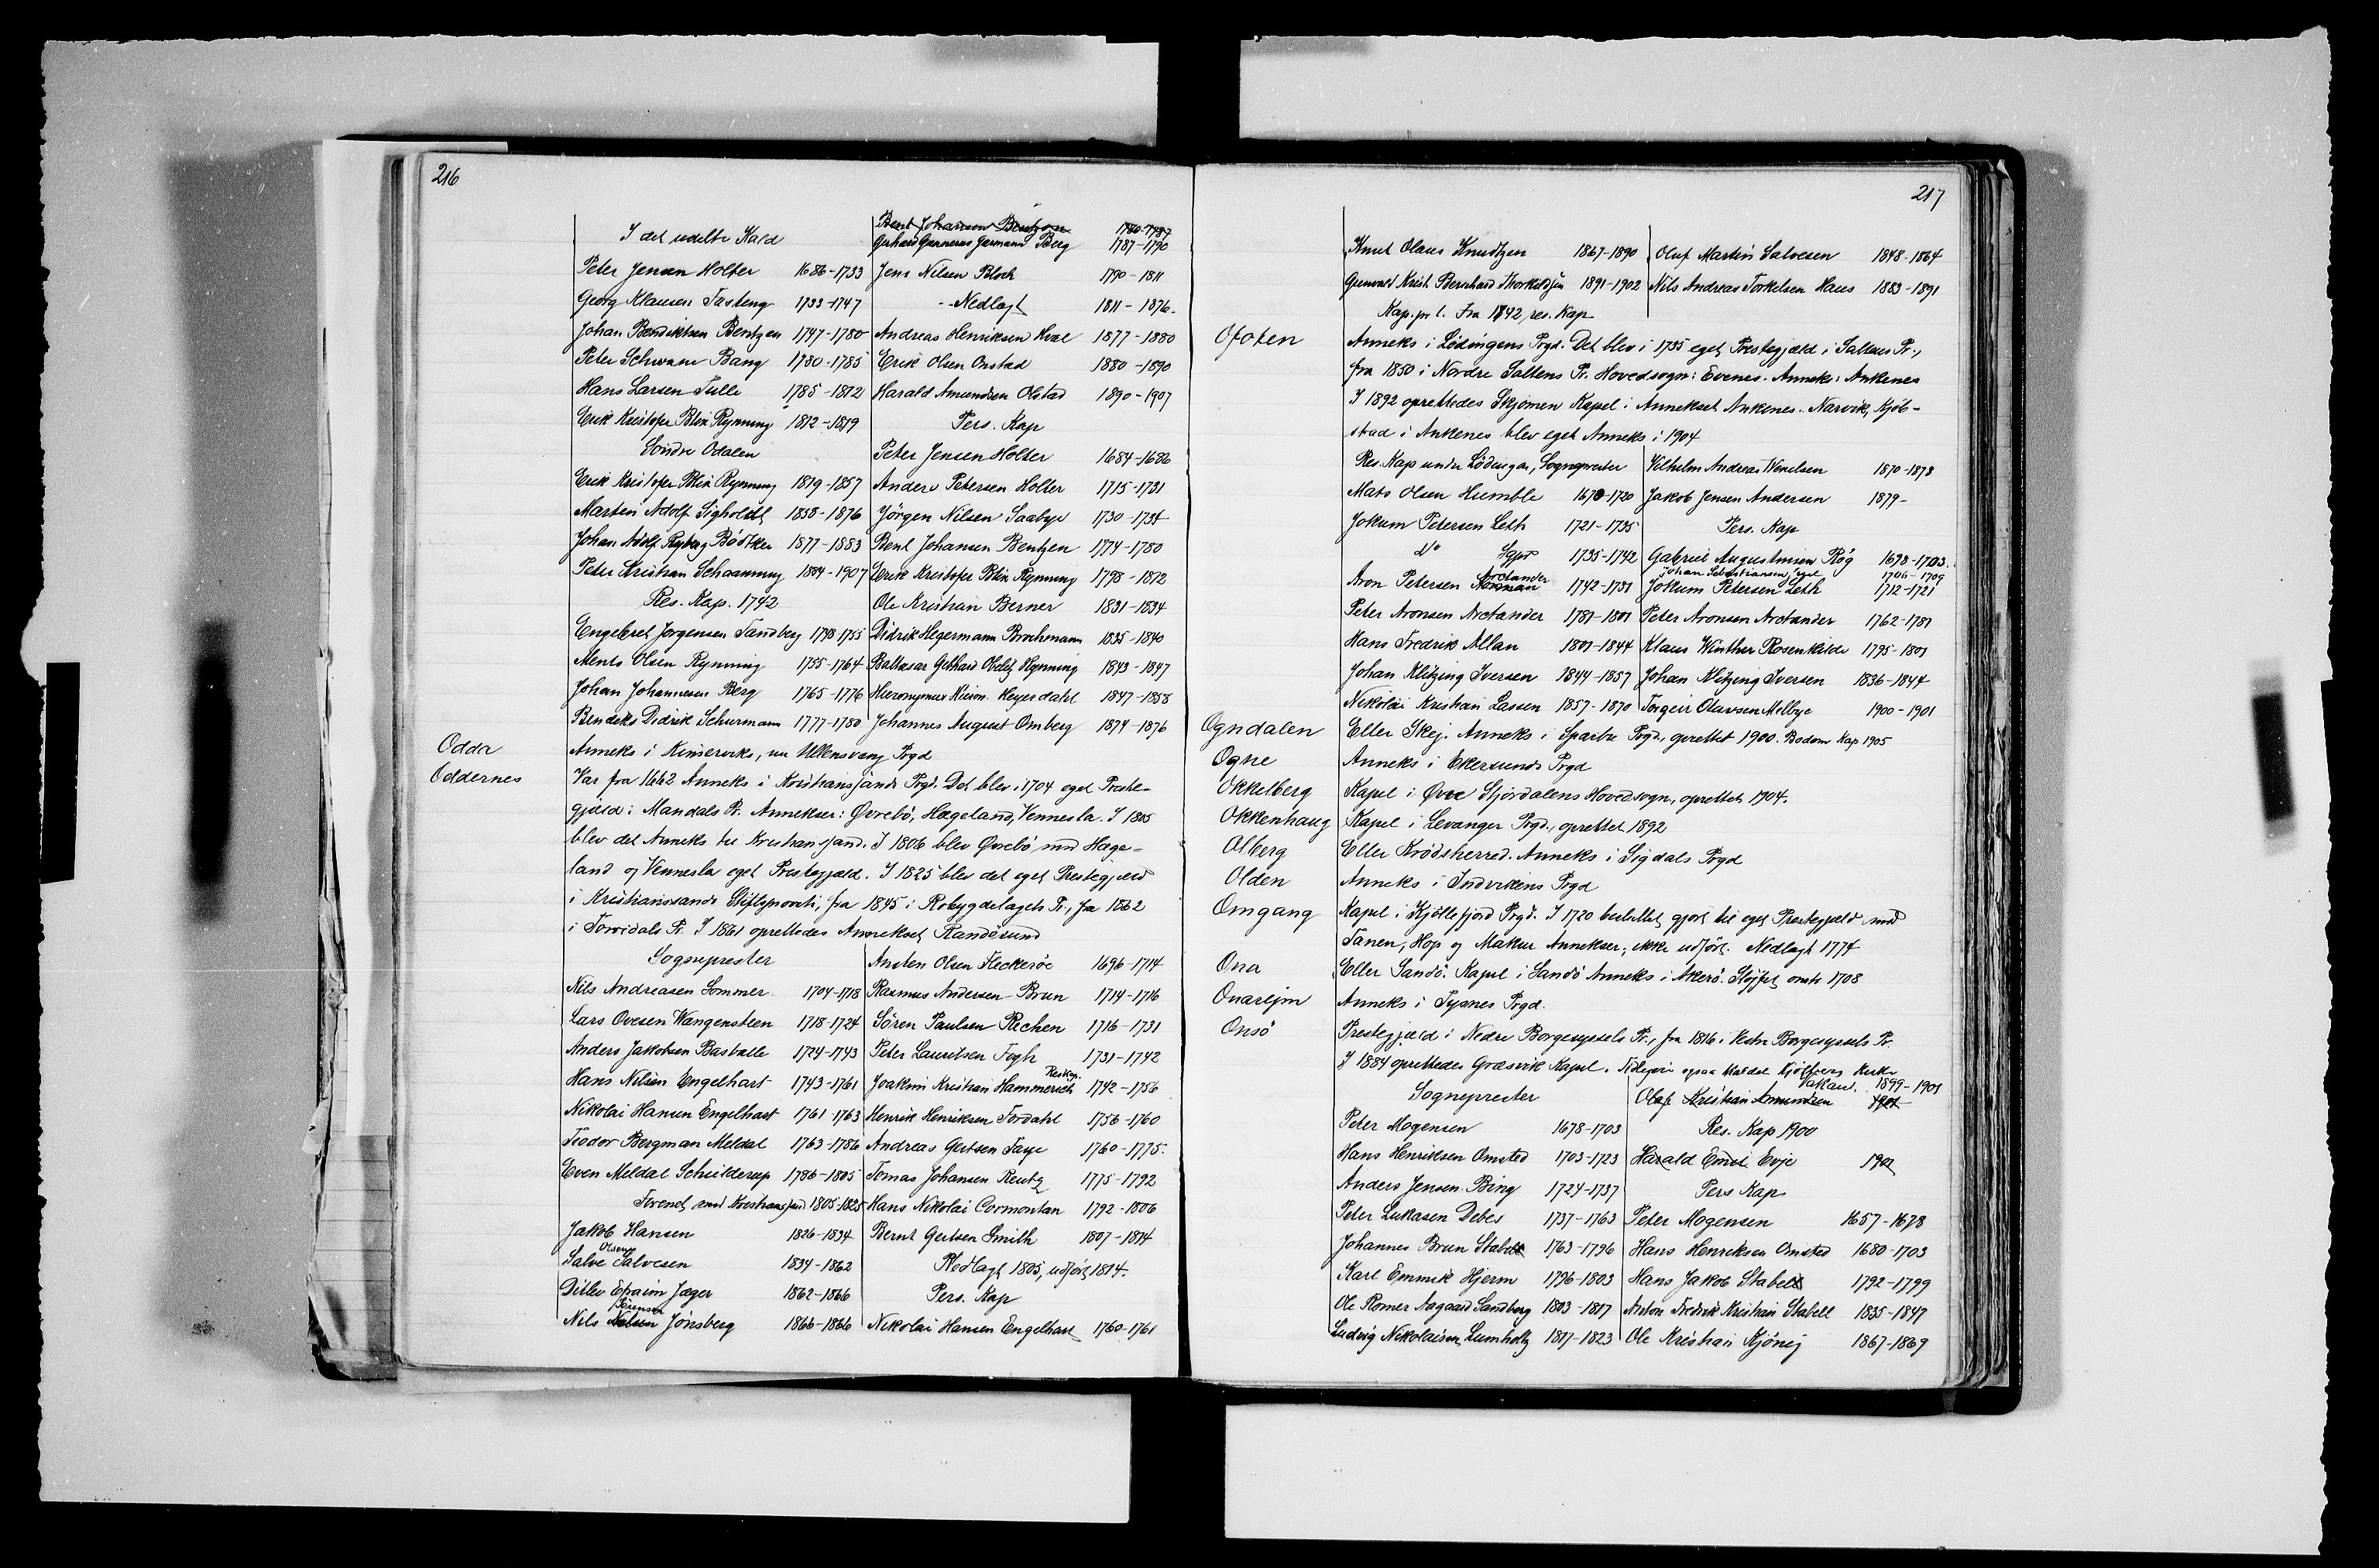 216
I det udelte Kald
Peter Jensen Holter 1686-1733
Georg Klausen Tasteng 1733-1747
Johan Bendiktsen Bentzen 1747-1780
Peter Schwane Bang 1780-1785
Hans Larsen Tulle 1785-1812
Erik Kristofer Blix Rynning 1812-1819
Søndre Odalen
Erik Kristofer Blix Rynning 1819-1857
Martin Adolf Sigholdt 1858-1876
Johan Adolf Ryberg Bödtker 1877-1883
Peter Kristian Schaanning 1884-1907
Res. Kap. 1742
Engebret Jørgensen Sandberg 1748-1755
Ments Olsen Rynning 1755-1764
Johan Johannesen Berg 1765-1776
Bendeks Didrik Schurmann 1777-1780
Bent Johansen Bentzen 1780-1787
Gerhard Gunnerus Jermann Berg 1787-1790
Jens Nilsen Bloch 1790-1811
- Nedlagt 1811-1876.
Andreas Henriksen Hval 1877-1880
Erik Olsen Onstad 1880-1890
Harald Amundsen Olstad 1890-1907
Pers. Kap
Peter Jensen Holter 1684-1686
Anders Petersen Holter 1715-1731
Jörgen Nilsen Saabye 1730-1734
Bent Johansen Bentzen 1774-1780
Erik Kristofer Blix Rynning 1798-1812
Ole Kristian Berner 1831-1834
Didrik Hegermann Brochmann 1835-1840
Baltasar Gebhard Obelitz Rynning 1843-1847
Hieronymus Heyerdahl 1847-1858
Johannes August Omberg 1874-1876
Odda Anneks i Kinserviks, nu Ullensvang Prgd
Oddernes Var fra 1662 Anneks i Kristiansands Prgd. Det blev i 1704 eget Preste-
gjeld i Mandals Pr. Annekser: Øvrebö, Hægeland, Vennesla. I 1805
blev det Anneks til Kristiansand. I 1806 blev Øvrebö med Hæge-
land og Vennesla eget Prestegjæld. I 1825 blev det eget Prestegjæld
i Kristianssands Stiftsprovsti, fra 1845 i Robygdelagets Pr., fra 1862
i Torridals Pr. I 1861 oprettedes Annekset Randösund
Sogneprester
Nils Andreasen Sommer 1704-1718
Lars Ovesen Wangensteen 1718-1724
Anders Jakobsen Basballe 1724-1743
Hans Nilsen Engelhart 1743-1761
Nikolai Hansen Engelhart 1761-1763
Teodor Bergman Meldal 1763-1786
Even Meldal Schielderup 1786-1805
Forenet med Kristiansand 1805-1825
Jakob Hansen 1826-1834
Olsen
Salve Salvesen 1834-1862
Ditlev Efraim Jæger 1862-1866
Sörensen
Nils Nielsen Jönsberg 1866-1866
Austen Olsen Fleckeröe 1696-1714
Rasmus Andersen Brun 1714-1716
Sören Paulsen Rechen 1716-1731
Peter Lauritsen Fogh 1731-1742
Res Kap.
Joakim Kristian Hammerich 1742-1756
Henrik Henriksen Tordahl 1756-1760
Andreas Gertsen Faye 1760-1775.
Tomas Johansen Rentz 1775-1792
Hans Nikolai Cormontan 1792-1806
Bernt Gertsen Smith 1807-1814
Nedlagt 1805, udført 1814.
Pers. Kap
Nikolai Hansen Engelhart 1760-1761
217
Knut Olaus Knudtzen 1867-1890
Gunvald Krist. Bernhard Thorkildsen 1891-1902
Kap. pr l. Fra 1742 res. Kap
Oluf Martin Salvesen 1848-1864
Nils Andreas Torkelsen Haus 1883-1891
Ofoten Anneks i Lödingens Prgd. Det blev i 1735 eget Prestegjæld i Saltens Pr.,
fra 1850 i Nordre Saltens Pr. Hovedsogn: Evenes. Anneks: Ankenes
I 1892 oprettedes Skjomen Kapel i Annekset Ankenes. Narvik, Kjöb-
stad i Ankenes blev eget Anneks i 1904
Res. Kap under Lödingen, Sogneprester
Mats Olsen Humble 1670-1720
Jokum Petersen Leth 1721-1735
Do Sgpr 1735-1742
Arctander
Aron Petersen Norman 1742-1781
Peter Aronsen Arctander 1781-1801
Hans Fredrik Allan 1801-1844
Johan Klitzing Iversen 1844-1857
Nikolai Kristian Lassen 1857-1870
Vilhelm Andreas Wexelsen 1870-1878
Jakob Jensen Andersen 1879-
Pers. Kap
Gabriel Augustinusen Røg 1698-1703.
Johan Sebastiansen 1706-1709
Jokum Petersen Leth 1712-1721
Peter Aronsen Arctander 1762-1781
Klaus Winther Rosenkilde 1795-1801
Johan Klitzing Iversen 1836-1844
Torgeir Olavsen Melbye 1900-1901
Ogndalen Eller Skej. Anneks i Sparbu Prgd., oprettet 1900. Bodom Kap 1905
Ogne Anneks i Ekersunds Prgd
Okkelberg Kapel i Øvre Stjördalens Hovedsogn, oprettet 1904.
Okkenhaug Kapel i Levanger Prgd., oprettet 1892
Olberg Eller Krödsherred. Anneks i Sigdals Prgd
Olden Anneks i Indvikens Prgd
Omgang Kapel i Kjöllefjord Prgd. I 1720 besluttet gjort til eget Prestegjæld med
Tanen, Hop og Makur Annekser; ikke udført. Nedlagt 1774
Ona Eller Sandö. Kapel i Sandö Anneks i Akerö. Sløjfet omtr 1708
Onarejm Anneks i Tysnes Prgd.
Onsö Prestegjæld i Nedre Borgesyssels Pr., fra 1816 i Vestre Borgesyssels Pr.
I 1884 oprettedes Græsvik Kapel. Tidligere ogsaa Kjölberg Kirke
Sogneprester
Peter Mogensen 1678-1703
Hans Henriksen Omsted 1703-1723
Anders Jensen Bing 1724-1737
Peter Lukasen Debes 1737-1763
Johannes Brun Stabell 1763-1796
Karl Emmik Hjerm 1796-1803
Ole Romer Aagaard Sandberg 1803-1817
Ludvig Nikolaisen Lumholtz 1817-1823
Vakant. 1899-1901
Olaf Kristian Amundsen 1901
Res. Kap 1900
Harald Emil Evje 1901
Pers Kap
Peter Mogensen 1657-1678
Hans Henriksen Omsted 1680-1703
Hans Jakob Stabell 1792-1799
Anton Fredrik Kristian Stabell 1835-1847
Ole Kristian Kjönig 1867-1869